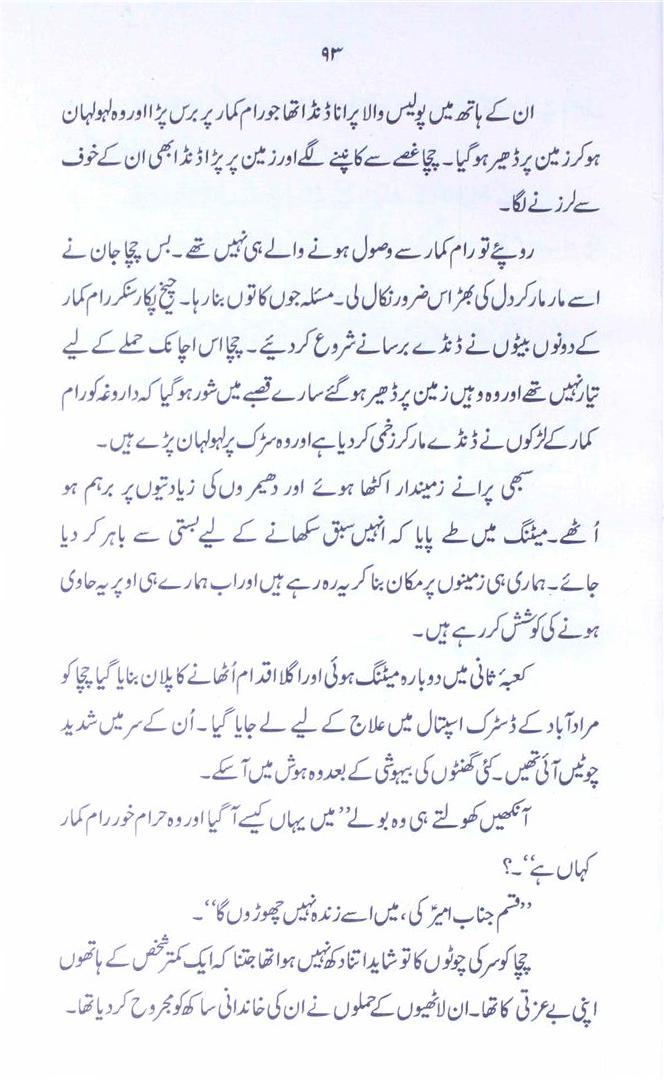 ۹۳
ان کے ہاتھ میں پولیس والا پرانا ڈنڈا تھا جو رام کمار پر برس پڑا اور وہ لہولہان
ہوکر زمین پر ڈھیر ہوگیا۔ چچا غصے سے کانپنے لگے اور زمین پر پڑا ڈنڈا بھی ان کے خوف
سے لرزنے لگا۔
روپئے تو رام کمار سے وصول ہونے والے ہی نہیں تھے۔ بس چچا جان نے
اسے مار مار کر دل کی بھڑاس ضرور نکال لی۔ مسئلہ جوں کا توں بنا رہا۔ چیخ پکار سنکر رام کمار
کے دونوں بیٹوں نے ڈنڈے برسانے شروع کردئیے۔ چچا اس اچانک حملے کے لیے
تیار نہیں تھے اور وہ وہیں زمین پر ڈھیر ہوگئے سارے قصبے میں شور ہوگیا کہ داروغہ کو رام
کمار کے لڑکوں نے ڈنڈے مار کر زخمی کردیا ہے اور وہ سڑک پر لہولہان پڑے ہیں۔
سبھی پرانے زمیندار اکٹھا ہوئے اور دھیمروں کی زیادتیوں پر برہم ہو
اُٹھے۔ میٹنگ میں طے پایا کہ انہیں سبق سکھانے کے لیے بستی سے باہر کر دیا
جائے۔ ہماری ہی زمینوں پر مکان بنا کر یہ رہ رہے ہیں اور اب ہمارے ہی اوپر یہ حاوی
ہونے کی کوشش کررہے ہیں۔
کعبۂ ثانی میں دوبارہ میٹنگ ہوئی اور اگلا اقدام اُٹھانے کا پلان بنایا گیا چچا کو
مرادآباد کے ڈسٹرک اسپتال میں علاج کے لیے لے جایا گیا۔ اُن کے سر میں شدید
چوٹیں آئی تھیں۔ کئی گھنٹوں کی بیہوشی کے بعد وہ ہوش میں آسکے۔
آنکھیں کھولتے ہی وہ بولے ”میں یہاں کیسے آگیا اور وہ حرام خور رام کمار
کہاں ہے“۔؟
”قسم جناب امیرؑ کی، میں اسے زندہ نہیں چھوڑوں گا“۔
چچا کو سر کی چوٹوں کا تو شاید اتنا دکھ نہیں ہوا تھا جتنا کہ ایک کمتر شخص کے ہاتھوں
اپنی بے عزتی کا تھا۔ ان لاٹھیوں کے حملوں نے ان کی خاندانی ساکھ کو مجروح کردیا تھا۔